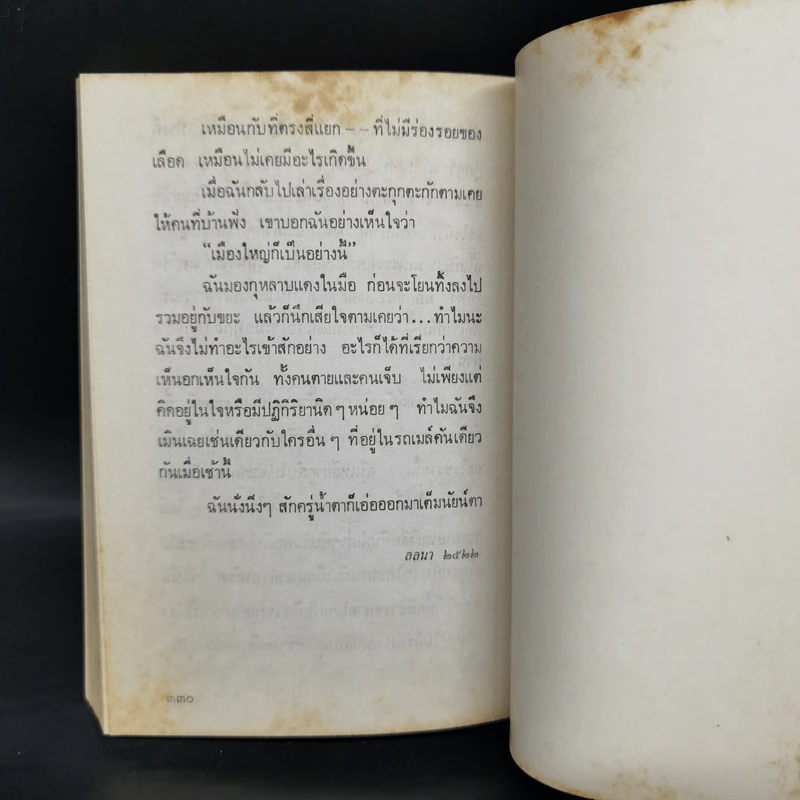 เหมือนกับที่ตรงสี่แยก -- ที่ไม่มีร่องรอยของ
เลือด เหมือนไม่เคยมีอะไรเกิดขึ้น
เมื่อฉันกลับไปเล่าเรื่องอย่างตะกุกตะกักตามเคย
ให้คนที่บ้านฟัง เขาบอกฉันอย่างเห็นใจว่า
“เมืองใหญ่ก็เป็นอย่างนี้”
ฉันมองกุหลาบแดงในมือ ก่อนจะโยนทิ้งลงไป
รวมอยู่กับขยะ แล้วก็นึกเสียใจตามเคยว่า...ทำไมนะ
ฉันจึงไม่ทำอะไรเข้าสักอย่าง อะไรก็ได้ที่เรียกว่าความ
เห็นอกเห็นใจกัน ทั้งคนตายและคนเจ็บ ไม่เพียงแต่
คิดอยู่ในใจหรือมีปฏิกิริยานิดๆหน่อยๆ ทำไมฉันจึง
เมินเฉยเช่นเดียวกับใครอื่นๆ ที่อยู่ในรถเมล์คันเดียว
กันเมื่อเช้านี้
ฉันนั่งนิ่งๆ สักครู่น้ำตาก็เอ่อออกมาเต็มนัยน์ตา
ลลนา ๒๕๒๒
๓๓๐